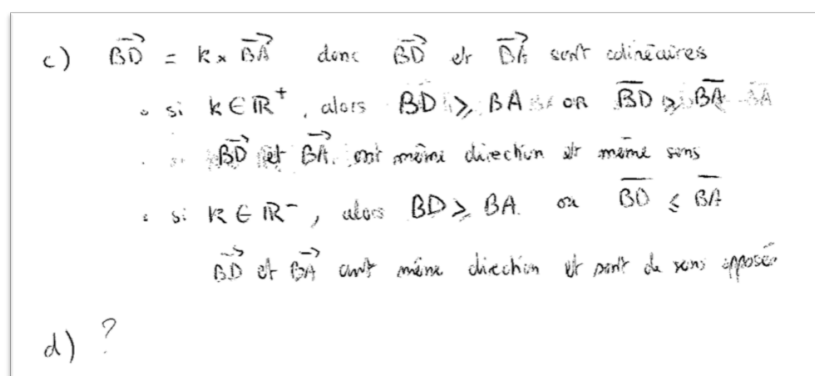 c) $\overrightarrow{BD}$ = k × $\overrightarrow{BA}$ donc $\overrightarrow{BD}$ et $\overrightarrow{BA}$ sont colinéaires
• si k ∈ ℝ⁺, alors BD ⩾ BA or $\overline{BD}$ ⩾ $\overline{BA}$
$\overrightarrow{BD}$ et $\overrightarrow{BA}$ ont même direction et même sens
• si k ∈ ℝ⁻, alors BD ⩾ BA ou $\overline{BD}$ ⩽ $\overline{BA}$
$\overrightarrow{BD}$ et $\overrightarrow{BA}$ ont même direction et sont de sens opposé
d) ?